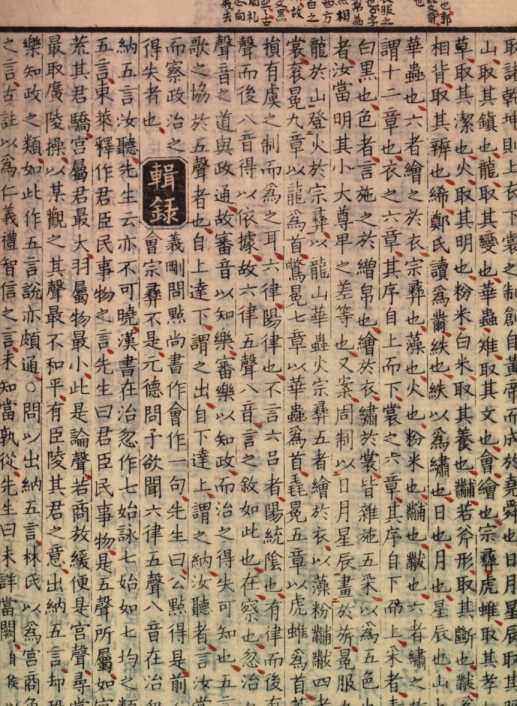 取諸乾坤則上衣下裳之制創自黃帝而成於堯舜也日月星辰
山取其鎮也龍取其變也華蟲雉取其文也會繪也宗彝虎蜼取其孝
草取其潔也火取其明也粉米白米取其養也黼若斧形取其斷也黻
相背取其辨也絺鄭氏讀爲黹紩也紩以爲繡也日也月也星辰也山
華蟲也六者繪之於衣宗彝也藻也火也粉米也黼也黻也六者繡之
謂十二章也衣之六章其序自上而下裳之六章其序自下而上采者青
白黑也色者言施之於繒帛也繪於衣繡於裳皆雜施五采以爲五色
者汝當明其小大尊卑之差等也又案周制以日月星辰畫於旂冕服
龍於山登火於宗彝以龍山華蟲火宗彝五者繪於衣以藻粉黼黻四者
裳衮冕九章以龍爲首鷩冕七章以華蟲爲首毳冕五章以虎蜼爲首
損有虞之制而爲之耳六律陽律也不言六呂者陽統陰也有律而後有
聲而後八音得以依據故六律五聲八音言之敘如此也在察也忽治
聲音之道與政通故審音以知樂審樂以知政而治之得失可知也五
歌之協於五聲者也自上達下謂之出自下達上謂之納汝聽者言汝當
而察政治之
得失者也
輯錄
義剛問點尚書作會作一句先生曰公點得是前
會宗彝不是元德問予欲聞六律五聲八音在治
納五言汝聽先生云亦不可曉漢書在治忽作七始詠七始如七均之類
五言東萊釋作君臣民事物之言先生曰君臣民事物是五聲所屬如宮
荒其君驕宮屬君最大羽屬物最小此是論聲若商放緩便是宮聲尋常
最取廣陵操以某觀之其聲最不和平有臣陵其君之意出納五言却
樂知政之類如此作五言說亦頗通○問以出納五言林氏以爲宮商角
之言古註以爲仁義禮智信之言未知當孰從先生曰未詳當闕